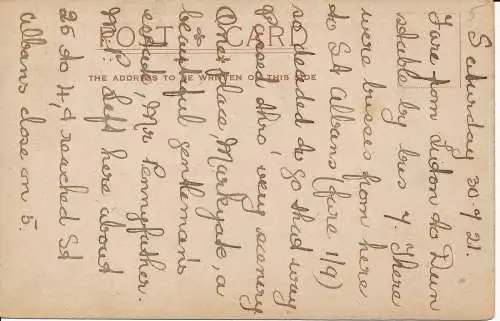 POST CARD
THE ADDRESS TO BE WRITTEN ON THIS SIDE
Saturday 30.7.21.
Fare from Luton to Dun
stable by bus 7. There
were busses from here
to St Albans (fare 1/9)
so decided to go that way.
Passed thro' very scenery
One place, Markyate, a
beautiful gentleman's
estate, Mr Pennyfather.
M.P. Left here about
25 to 4, & reached St
Albans close on 5.